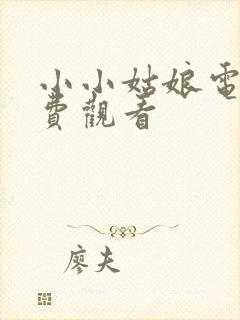 小小姑娘電
費觀看
廖夫